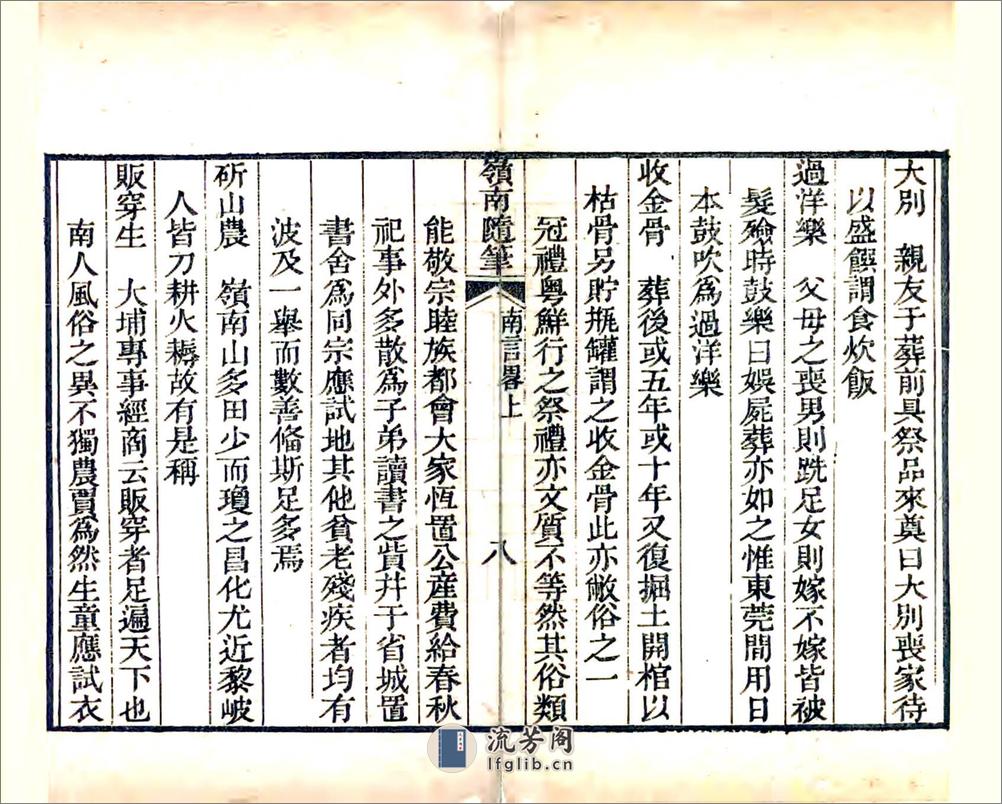 大別　親友于葬前具祭品來奠曰大別喪家待
以盛饌謂食炊飯
過洋樂　父母之喪男則跣足女則嫁不嫁皆被
髮殮時鼓樂曰娛屍葬亦如之惟東莞間用日
本鼓吹爲過洋樂
收金骨　葬後或五年或十年又復掘土開棺以
枯骨另貯瓶罐謂之收金骨此亦敝俗之一
冠禮粤鮮行之祭禮亦文質不等然其俗類
嶺南隨筆　南言畧上　八
能敬宗睦族都會大家恆置公産費給春秋
祀事外多散爲子弟讀書之貲幷于省城置
書舍爲同宗應試地其他貧老殘疾者均有
波及一舉而數善偹斯足多焉
斫山農　嶺南山多田少而瓊之昌化尤近黎岐
人皆刀耕火耨故有是稱
販穿生　大埔專事經商云販穿者足遍天下也
南人風俗之異不獨農賈爲然生童應試衣
流芳阁
lfglib.cn